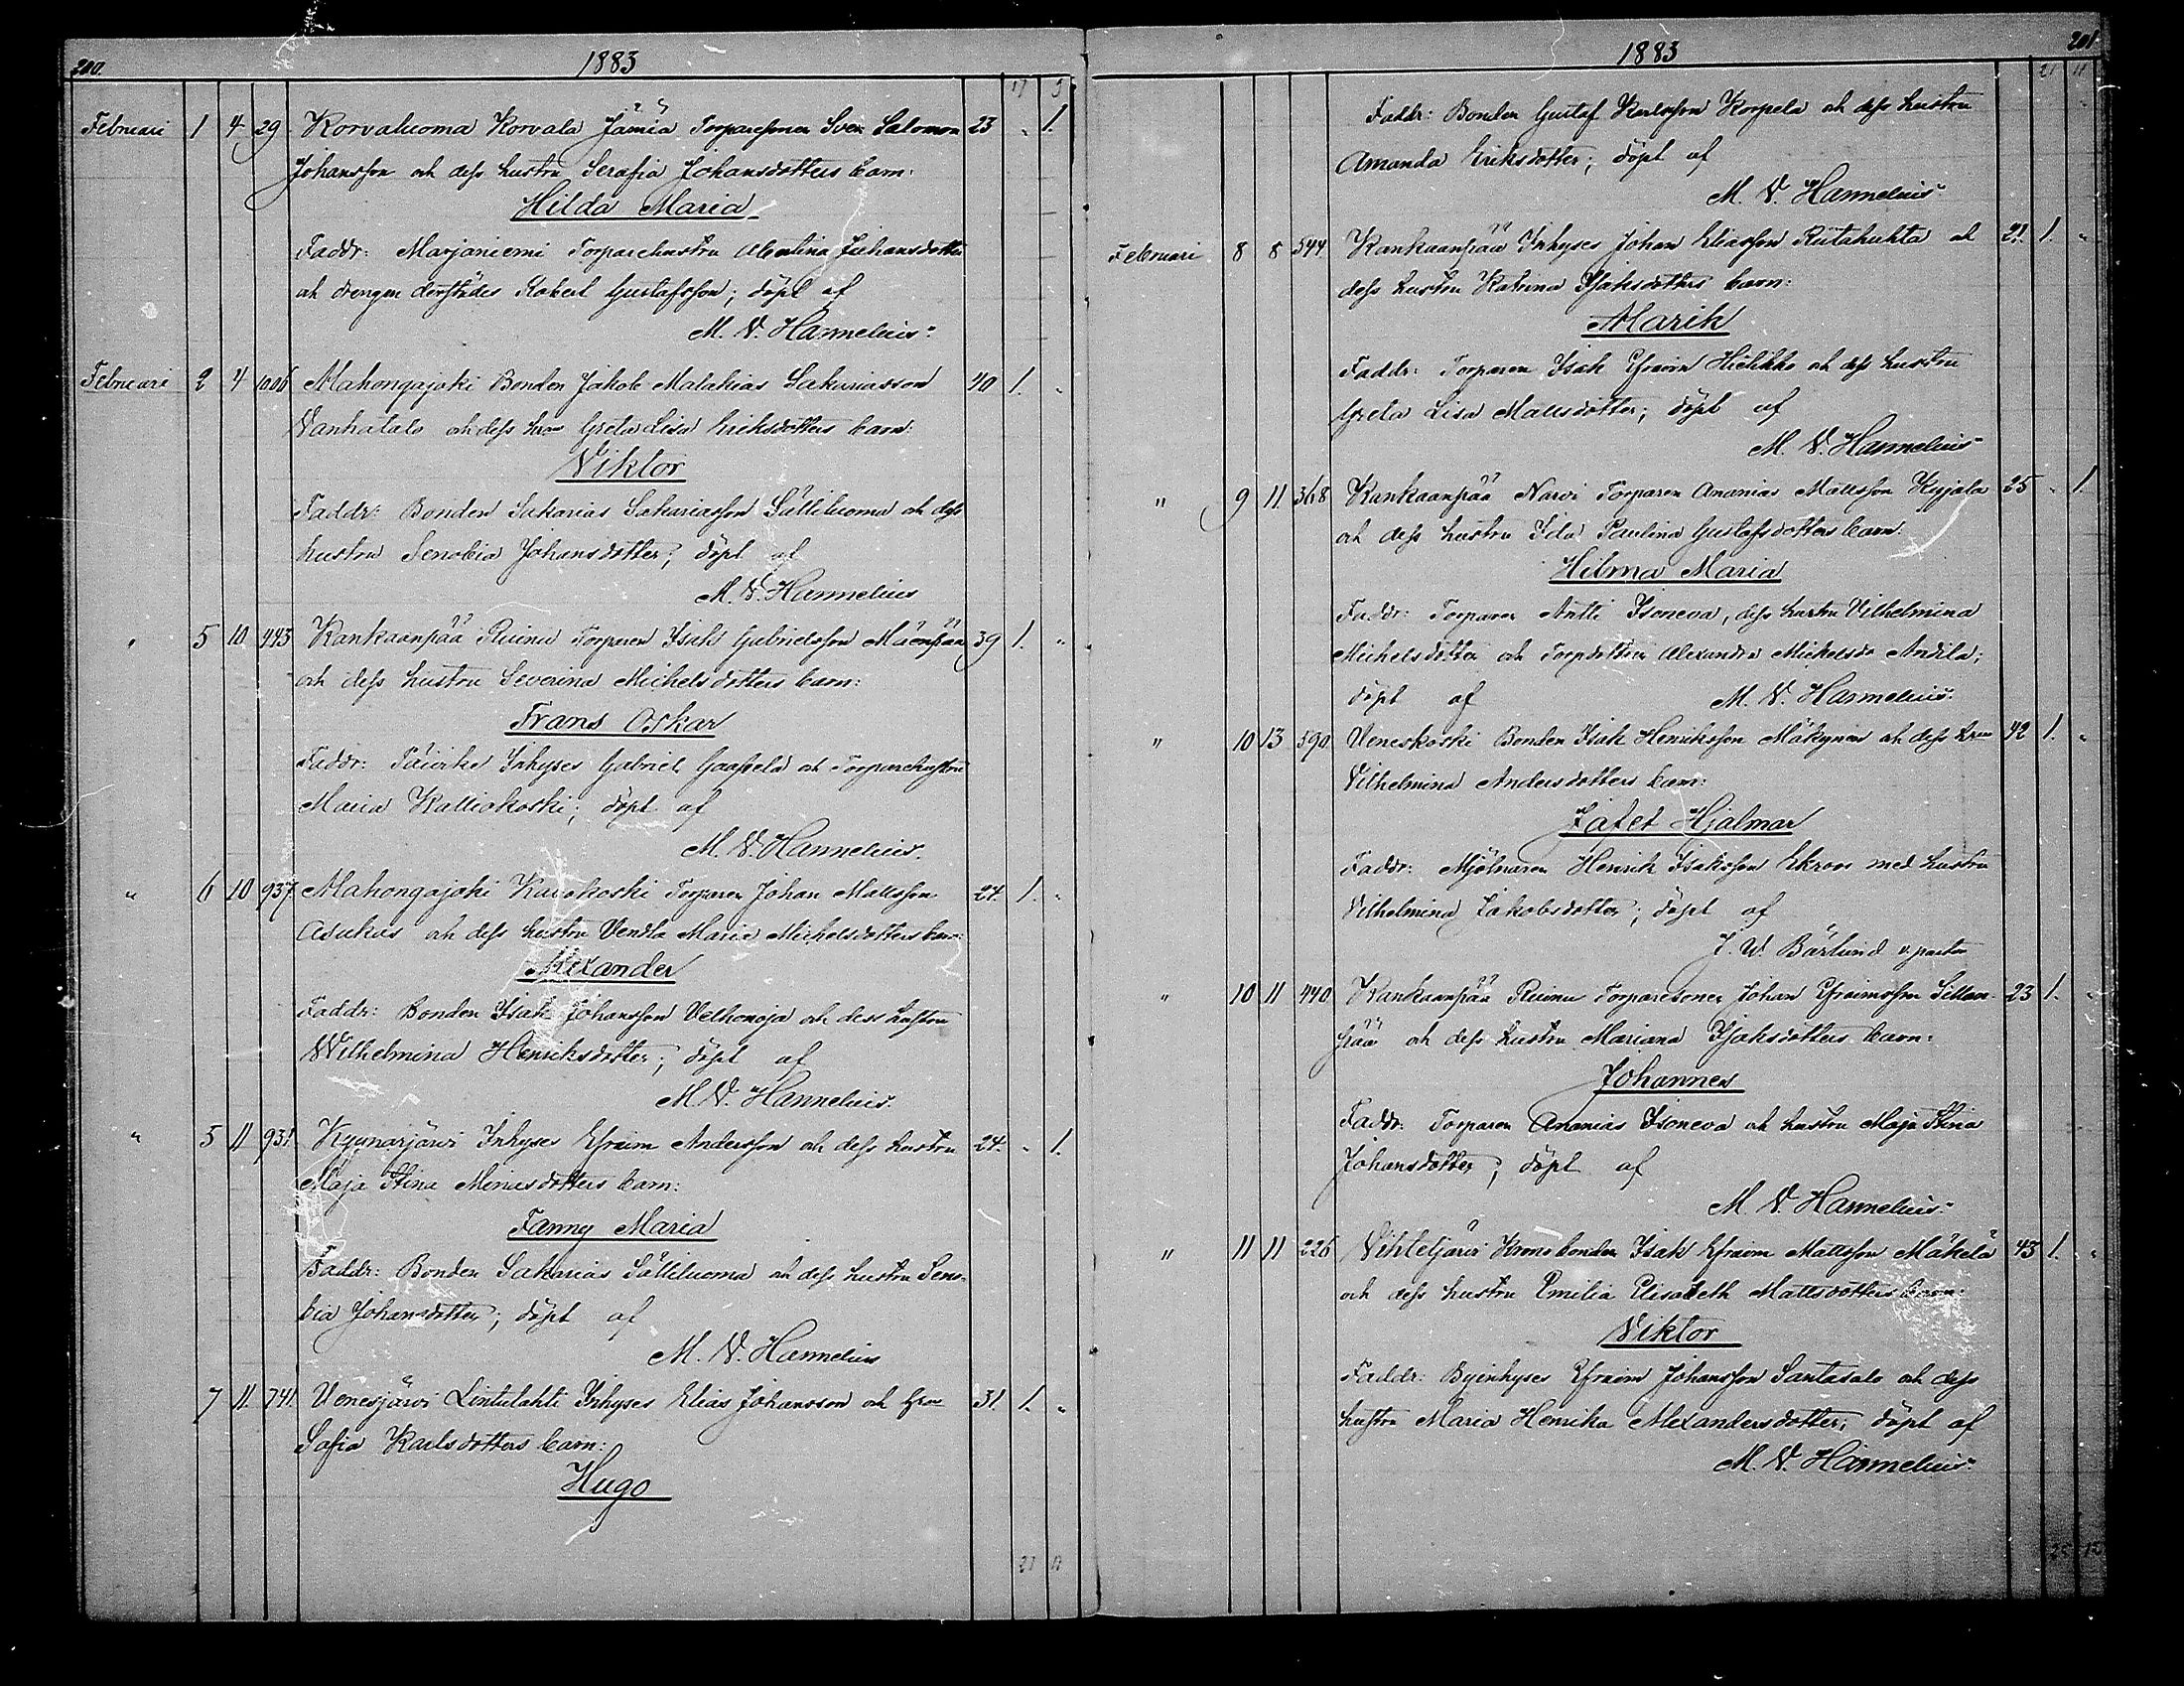 200.
1883
17 5
Februari 1 4 29 Korvaluoma Korvala Jämiä Torparesonen Sven Salomon 23 „ 1.
Johansson och dess hustru Serafia Johansdotters barn:
Hilda Maria
Faddr: Marjaniemi Torparehustru Johansdotter
och drengen derstädes Robert Gustafsson; döpt af
M. V. Hannelius.
Februari 2 4 1006 Mahongajoki Bonden Jakob Malakias Sakariasson 40 1. „
Vanhatalo och dess hrn Greta Lisa Eriksdotters barn:
Viktor
Faddr: Bonden Sakarias Sakariasson Sälliluoma och dess
hustru Senobia Johansdotter; döpt af
M. V. Hannelius
„ 5 10 443 Kankaanpää Ruinu Torparen Isak Gabrielsson Mäenpää 39 1. „
och dess hustru Severina Michelsdotters barn:
Frans Oskar
Faddr: Inhyses Gabriel och Torparehustru
Maria Kalliokoski; döpt af
M. V. Hannelius.
„ 6 10 937. Mahongajoki Torparen Johan Mattsson 24. 1. „
Asukas och dess hustru Vendla Maria Michelsdotters barn:
Alexander
Faddr: Bonden Isak Johansson Velhonoja och dess hustru
Wilhelmina Henriksdotter; döpt af
M. V. Hannelius.
„ 5 11 931. Kyynärjärvi Inhyses Efraim Andersson och dess hustru 24. „ 1.
Maja Stina dotters barn:
Fanny Maria
Faddr: Bonden Sakarias Sälliluoma och dess hustru Seno-
bia Johansdotter; döpt af
M. V. Hannelius
7 11. 741. Venesjärvi Lintulahti Inhyses Elias Johansson och hrn 31. 1. „
Sofia Karlsdotters barn:
Hugo
21 11
1883
201
21 11
Faddr: Bonden Gustaf Karlsson Korpela och dess hustru
Amanda Eriksdotter; döpt af
M. V. Hannelius.
Februari 8 8 544. Kankaanpää Inhyses Johan Eliasson Riitahuhta och 21. 1. „
dess hustru Katrina Isaksdotters barn:
Marih
Faddr: Torparen Isak Efraim Hietikko och dess hustru
Greta Lisa Mattsdotter; döpt af
M. V. Hannelius
" 9 11. 368 Kankaanpää Narvi Torparen Ananias Mattsson Kyjala 25 „ 1.
och dess hustru Ida Paulina Gustafsdotters barn:
Hilma Maria
Faddr: Torparen Antti Isoneva, dess hustru Vilhelmina
Michelsdotter och Torpdottren Alexandra Michelsdr Andila;
döpt af M. V. Hannelius.
" 10 13 590. Veneskoski Bonden Isak Henriksson Mäkynen och dess hrn 42 1. „
Vilhelmina Andersdotters barn:
Jafet Hjalmar
Faddr: Mjölnaren Henrik Isaksson Ekroos med hustru
Vilhelmina Jakobsdotter; döpt af
J. W. Bärlund v. pastor
" 10 11 440. Kankaanpää Ruinu Torparesonen Johan Efraimsson Sillan- 23 1. „
pää och dess hustru Mariana Isaksdotters barn:
Johannes
Faddr: Torparen Ananias Isoneva och hustru Maja Stina
Johansdotter; döpt af
M. V. Hannelius.
" 11 11 226 Vihteljärvi Kronobonden Isak Efraim Mattsson Mäkelä 43 1. „
och dess hustru Emilia Elisabeth Mattsdotters barn:
Viktor
Faddr: Byinhyses Efraim Johansson Santasalo och dess
hustru Maria Henrika Alexandersdotter; döpt af
M. V. Hannelius.
25 12